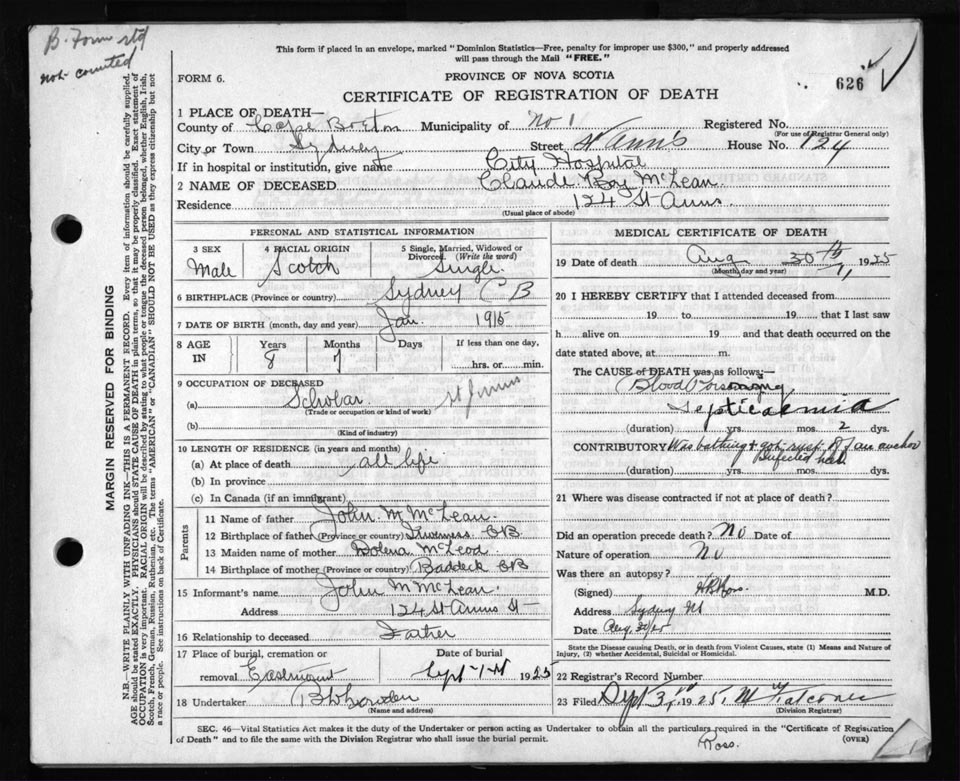 B. Form
not counted
This form if placed in an envelope, marked "Dominion Statistics—Free, penalty for improper use $300," and properly addressed
will pass through the Mail "FREE."
FORM 6.
PROVINCE OF NOVA SCOTIA
626
CERTIFICATE OF REGISTRATION OF DEATH
1 PLACE OF DEATH—
County of Cape Breton Municipality of No 1 Registered No.
(For use of Registrar General only)
City or Town Sydney Street St Ann's House No. 124
If in hospital or institution, give name City Hospital
2 NAME OF DECEASED Claude Roy McLean
Residence 124 St Anns.
(Usual place of abode)
PERSONAL AND STATISTICAL INFORMATION
3 SEX
Male
4 RACIAL ORIGIN
Scotch
5 Single, Married, Widowed or
Divorced. (Write the word)
Single
6 BIRTHPLACE (Province or country) Sydney C B
7 DATE OF BIRTH (month, day and year) Jan. 1915
8 AGE
IN
Years
8
Months
7
Days
If less than one day,
hrs. or min.
9 OCCUPATION OF DECEASED
(a) Scholar
(Trade or occupation or kind of work)
(b)
(Kind of industry)
10 LENGTH OF RESIDENCE (in years and months)
(a) At place of death all life
(b) In province
(c) In Canada (if an immigrant)
Parents
11 Name of father John M McLean.
12 Birthplace of father (Province or country) Inverness CB.
13 Maiden name of mother Dolena McLeod.
14 Birthplace of mother (Province or country) Baddeck CB
15 Informant's name John M McLean.
Address 124 St Anns St—
16 Relationship to deceased Father
17 Place of burial, cremation or
removal Eastmount
Date of burial
Sept 1st 1925
18 Undertaker
(Name and address)
MEDICAL CERTIFICATE OF DEATH
19 Date of death Aug 30th 1925
(Month, day and year)
20 I HEREBY CERTIFY that I attended deceased from
19 to 19 that I last saw
h alive on 19 and that death occurred on the
date stated above, at m.
The CAUSE of DEATH was as follows:—
Blood Poisoning
Septicaemia
(duration) yrs. mos. 2 dys.
CONTRIBUTORY Was bathing + got rust of an anchor
infected
(duration) yrs. mos. dys.
21 Where was disease contracted if not at place of death?
Did an operation precede death? No Date of
Nature of operation No
Was there an autopsy?
(Signed) M.D.
Address Sydney
Date Aug. 30/25
State the Disease causing Death, or in death from Violent Causes, state (1) Means and Nature of
Injury, (2) whether Accidental, Suicidal or Homicidal.
22 Registrar's Record Number
23 Filed Sept 3rd 1925, Falconer
(Division Registrar)
SEC. 46—Vital Statistics Act makes it the duty of the Undertaker or person acting as Undertaker to obtain all the particulars required in the "Certificate of Registration
of Death" and to file the same with the Division Registrar who shall issue the burial permit.
(OVER)
Ross.
MARGIN RESERVED FOR BINDING
N.B.—WRITE PLAINLY WITH UNFADING INK—THIS IS A PERMANENT RECORD. Every item of information should be carefully supplied.
AGE should be stated EXACTLY. PHYSICIANS should STATE CAUSE OF DEATH in plain terms, so that it may be properly classified. Exact statement of
OCCUPATION is very important. RACIAL ORIGIN will be described by stating to what people or tongue the deceased person belonged, whether English, Irish,
Scotch, French, German, Russian, Ruthenian, etc. The terms "AMERICAN" or "CANADIAN" SHOULD NOT BE USED as they express citizenship but not
a race or people. See instructions on back of Certificate.